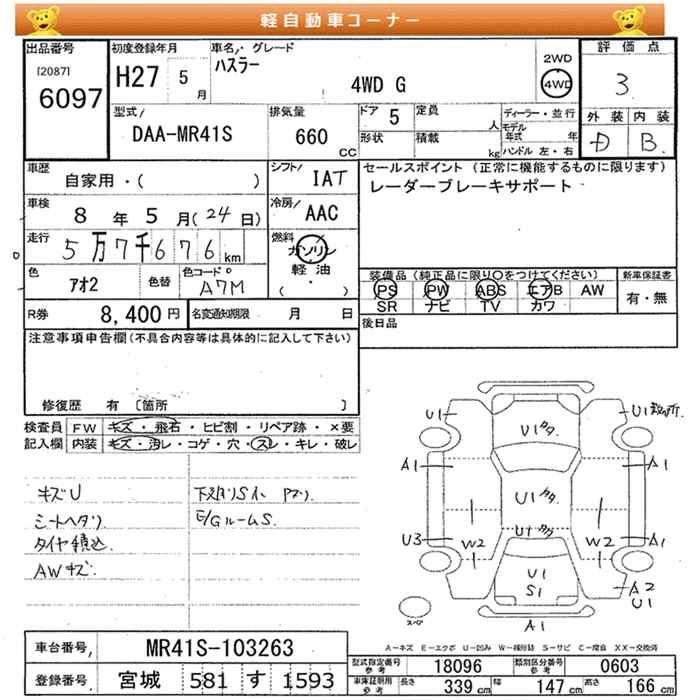 軽自動車コーナー
出品番号
[2087]
6097
初度登録年月
H27 5月
車名・グレード
ハスラー
4WD G
2WD
4WD
評価点
3
外装 内装
D B
型式
DAA-MR41S
排気量
660 CC
ドア 5
定員 人
形状 積載 kg
ディーラー・並行
モデル年式 年
ハンドル 左・右
車歴
自家用・( )
シフト
IAT
車検
8年5月(24日)
冷房
AAC
走行
5万7千676km
燃料
ガソリン
軽油
( ・ )
色
アオ2
色替
色コード
A7M
セールスポイント (正常に機能するものに限ります)
レーダーブレーキサポート
装備品 (純正品に限り○をつけてください)
PS PW ABS エアB AW
SR ナビ TV カワ
新車保証書
有・無
後日品
R券
8,400円
名変通知期限 月 日
注意事項申告欄(不具合内容等は具体的に記入して下さい)
修復歴 有 [箇所 ]
検査員記入欄
FW キズ・飛石・ヒビ割・リペア跡・×要
内装 キズ・汚レ・コゲ・穴・スレ・キレ・破レ
キズU
シートヘタリ
タイヤ積込
AWキズ
E/GルームS.
U1
U1
A1
A1
U1
U1
U1
U3
A1
W2
W2
U1
S1
A2
U1
A1
スペア
A-キズ E-エクボ U-凹み W-補修跡 S-サビ C-腐食 XX-交換済
車台番号
MR41S-103263
登録番号
宮城 581 す 1593
型式指定番号 参考
18096
類別区分番号 参考
0603
車庫証明用 参考
長さ 339cm 幅 147cm 高さ 166cm